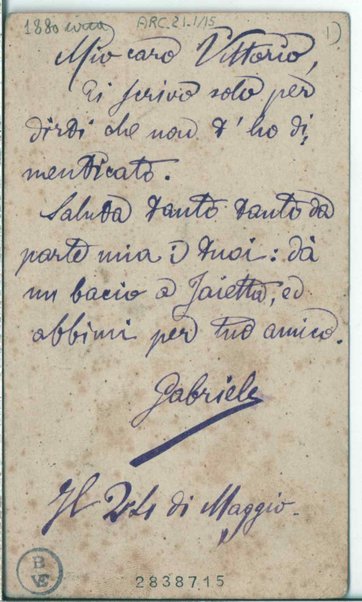 1880 circa
ARC.21.I/15
1)
Mio caro Vittorio,
Ti scrivo solo per
dirti che non t'ho di,
menticato.
Saluta tanto tanto da
parte mia i tuoi: dà
un bacio a Jaietta, ed
abbimi per tuo amico.
Gabriele
Il 24 di Maggio.
BVE
2838715